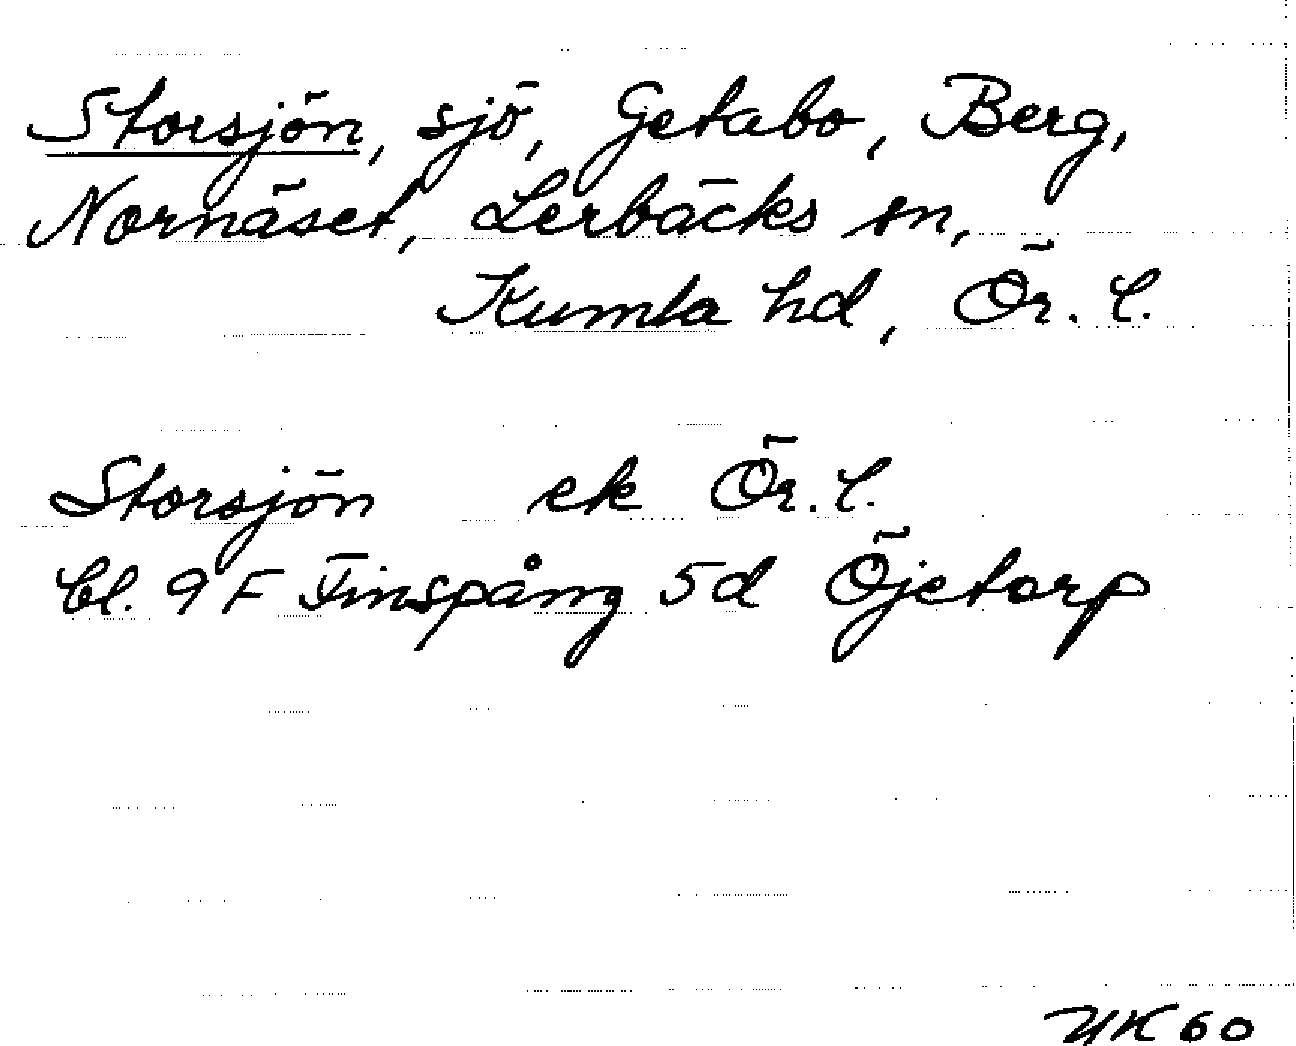 Storsjön, sjö, Getabo, Berg,
Nornäset, Lerbäcks sn,
Kumla hd, Ör. l.
Storsjön ek Ör. l.
bl. 9F Finspång 5d Öjetorp
NK 60